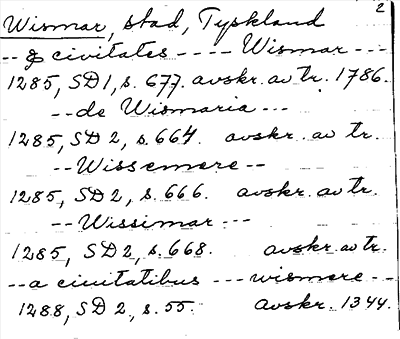 2
Wismar, stad, Tyskland
-- & civitates ---- Wismar ---
1285, SD 1, s. 677. avskr. av tr. 1786.
-- de Wismaria ---
1285, SD 2, s. 664. avskr. av tr.
-- Wissemere --
1285, SD 2, s. 666. avskr. av tr.
-- Wissimar ---
1285, SD 2, s. 668. avskr. av tr.
-- a ciuitatibus --- wismere --
1288, SD 2, s. 55. avskr. 1344.